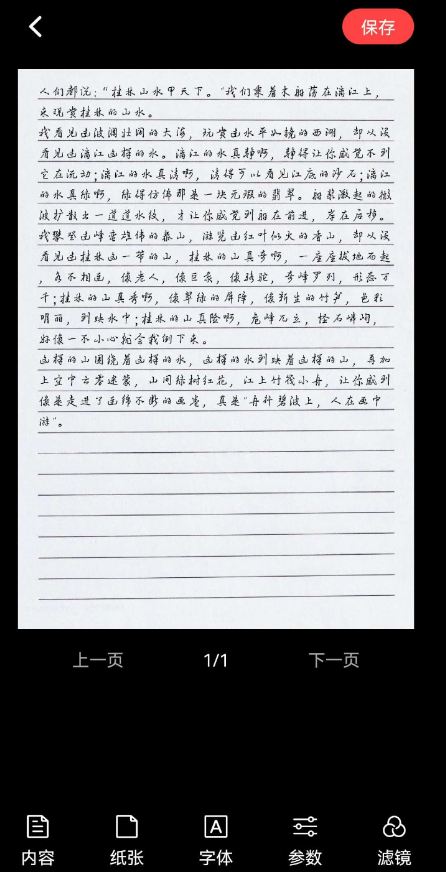 保存
人们都说:"桂林山水甲天下。"我们乘着木船荡在漓江上,
来观赏桂林的山水。
我看见过波澜壮阔的大海,玩赏过水平如镜的西湖,却从没
看见过漓江这样的水。漓江的水真静啊,静得让你感觉不到
它在流动;漓江的水真清啊,清得可以看见江底的沙石;漓江
的水真绿啊,绿得仿佛那是一块无瑕的翡翠。船桨激起的微
波扩散出一道道水纹,才让你感觉到船在前进,岸在后移。
我攀登过峰峦雄伟的泰山,游览过红叶似火的香山,却从没
看见过桂林这一带的山,桂林的山真奇啊,一座座拔地而起
,各不相连,像老人,像巨象,像骆驼,奇峰罗列,形态万
千;桂林的山真秀啊,像翠绿的屏障,像新生的竹笋,色彩
明丽,倒映水中;桂林的山真险啊,危峰兀立,怪石嶙峋,
好像一不小心就会栽倒下来。
这样的山围绕着这样的水,这样的水倒映着这样的山,再加
上空中云雾迷蒙,山间绿树红花,江上竹筏小舟,让你感到
像是走进了连绵不断的画卷,真是"舟行碧波上,人在画中
游"。
上一页 1/1 下一页
内容 纸张 字体 参数 滤镜